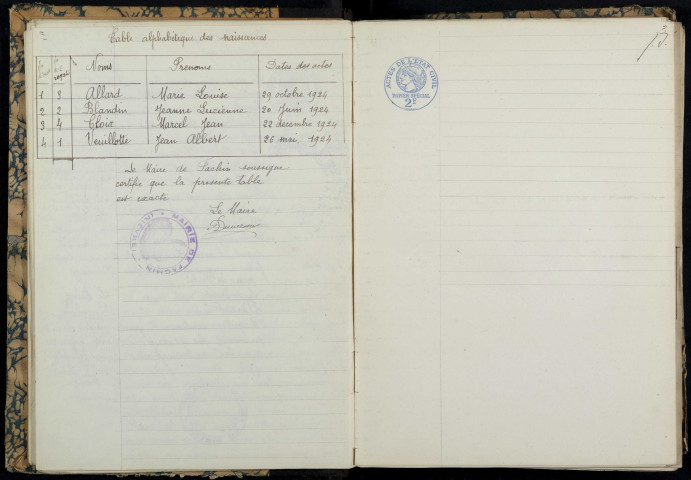 Table alphabétique des naissances
Noms Prenoms Dates des actes
1 3 Allard Marie Louise 29 octobre 1924
2 2 Blandin Jeanne Lucienne 20 Juin 1924
3 4 Cloix Marcel Jean 22 decembre 1924
4 1 Veuillotte Jean Albert 26 mai 1924
Le Maire de Fachin soussigné
certifie que la presente table
est exacte
Le Maire
MAIRIE DE FACHIN
ACTES DE L'ETAT CIVIL
PAPIER SPECIAL
2F